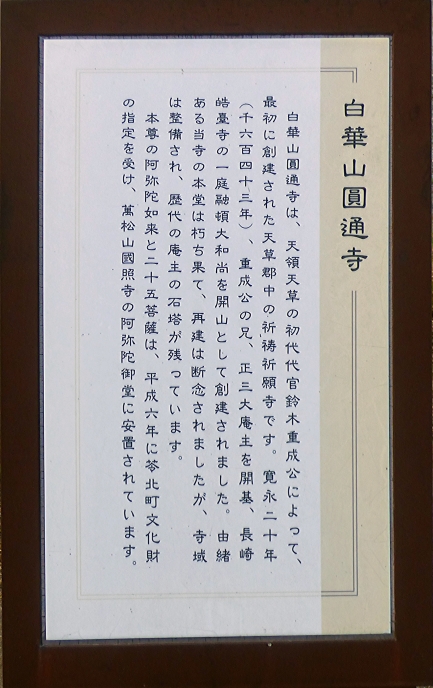 白華山圓通寺
白華山圓通寺は、天領天草の初代代官鈴木重成公によって、
最初に創建された天草郡中の祈祷祈願寺です。寛永二十年
（千六百四十三年）、重成公の兄、正三大庵主を開基、長崎
皓臺寺の一庭融頓大和尚を開山として創建されました。由緒
ある当寺の本堂は朽ち果て、再建は断念されましたが、寺域
は整備され、歴代の庵主の石塔が残っています。
本尊の阿弥陀如来と二十五菩薩は、平成六年に苓北町文化財
の指定を受け、萬松山國照寺の阿弥陀御堂に安置されています。